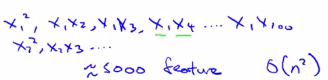 x₁², x₁x₂, x₁x₃, x₁x₄ .... x₁x₁₀₀
x₂², x₂x₃ ....
≈ 5000 feature O(n²)